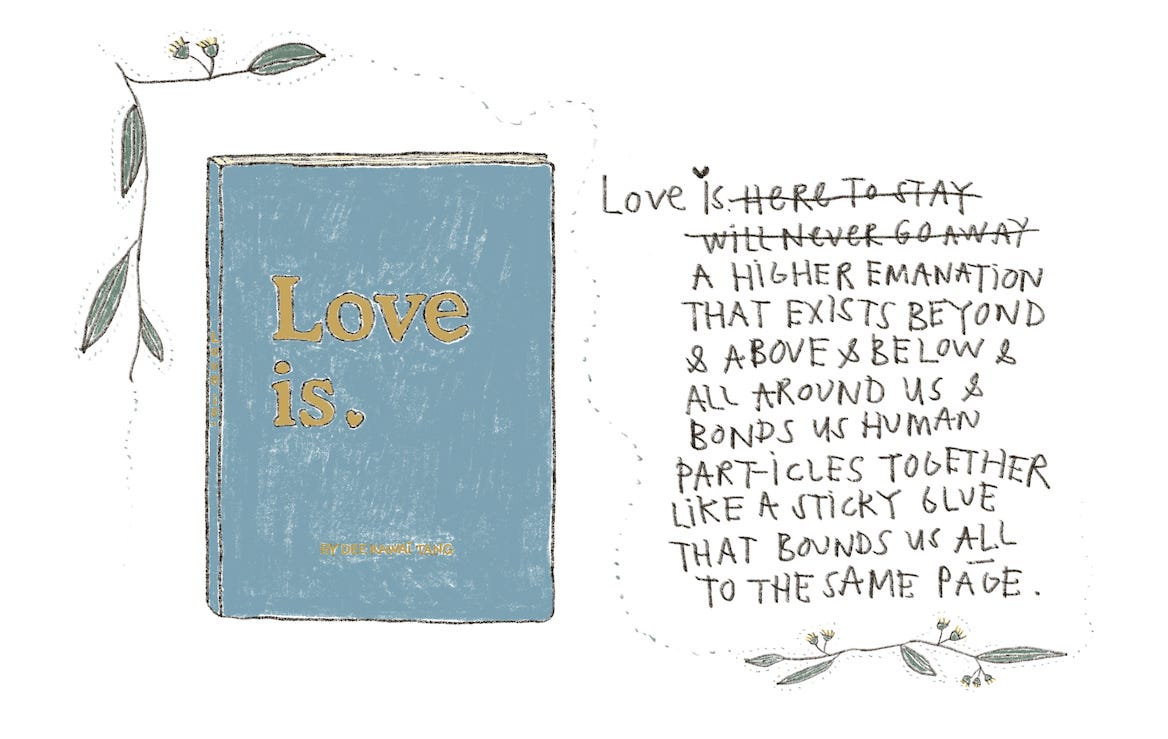 Love
is.
BY DEB KAWAI TANG
Love is HERE TO STAY
WILL NEVER GO AWAY
A HIGHER EMANATION
THAT EXISTS BEYOND
& ABOVE & BELOW &
ALL AROUND US &
BONDS US HUMAN
PARTICLES TOGETHER
LIKE A STICKY GLUE
THAT BOUNDS US ALL
TO THE SAME PAGE.